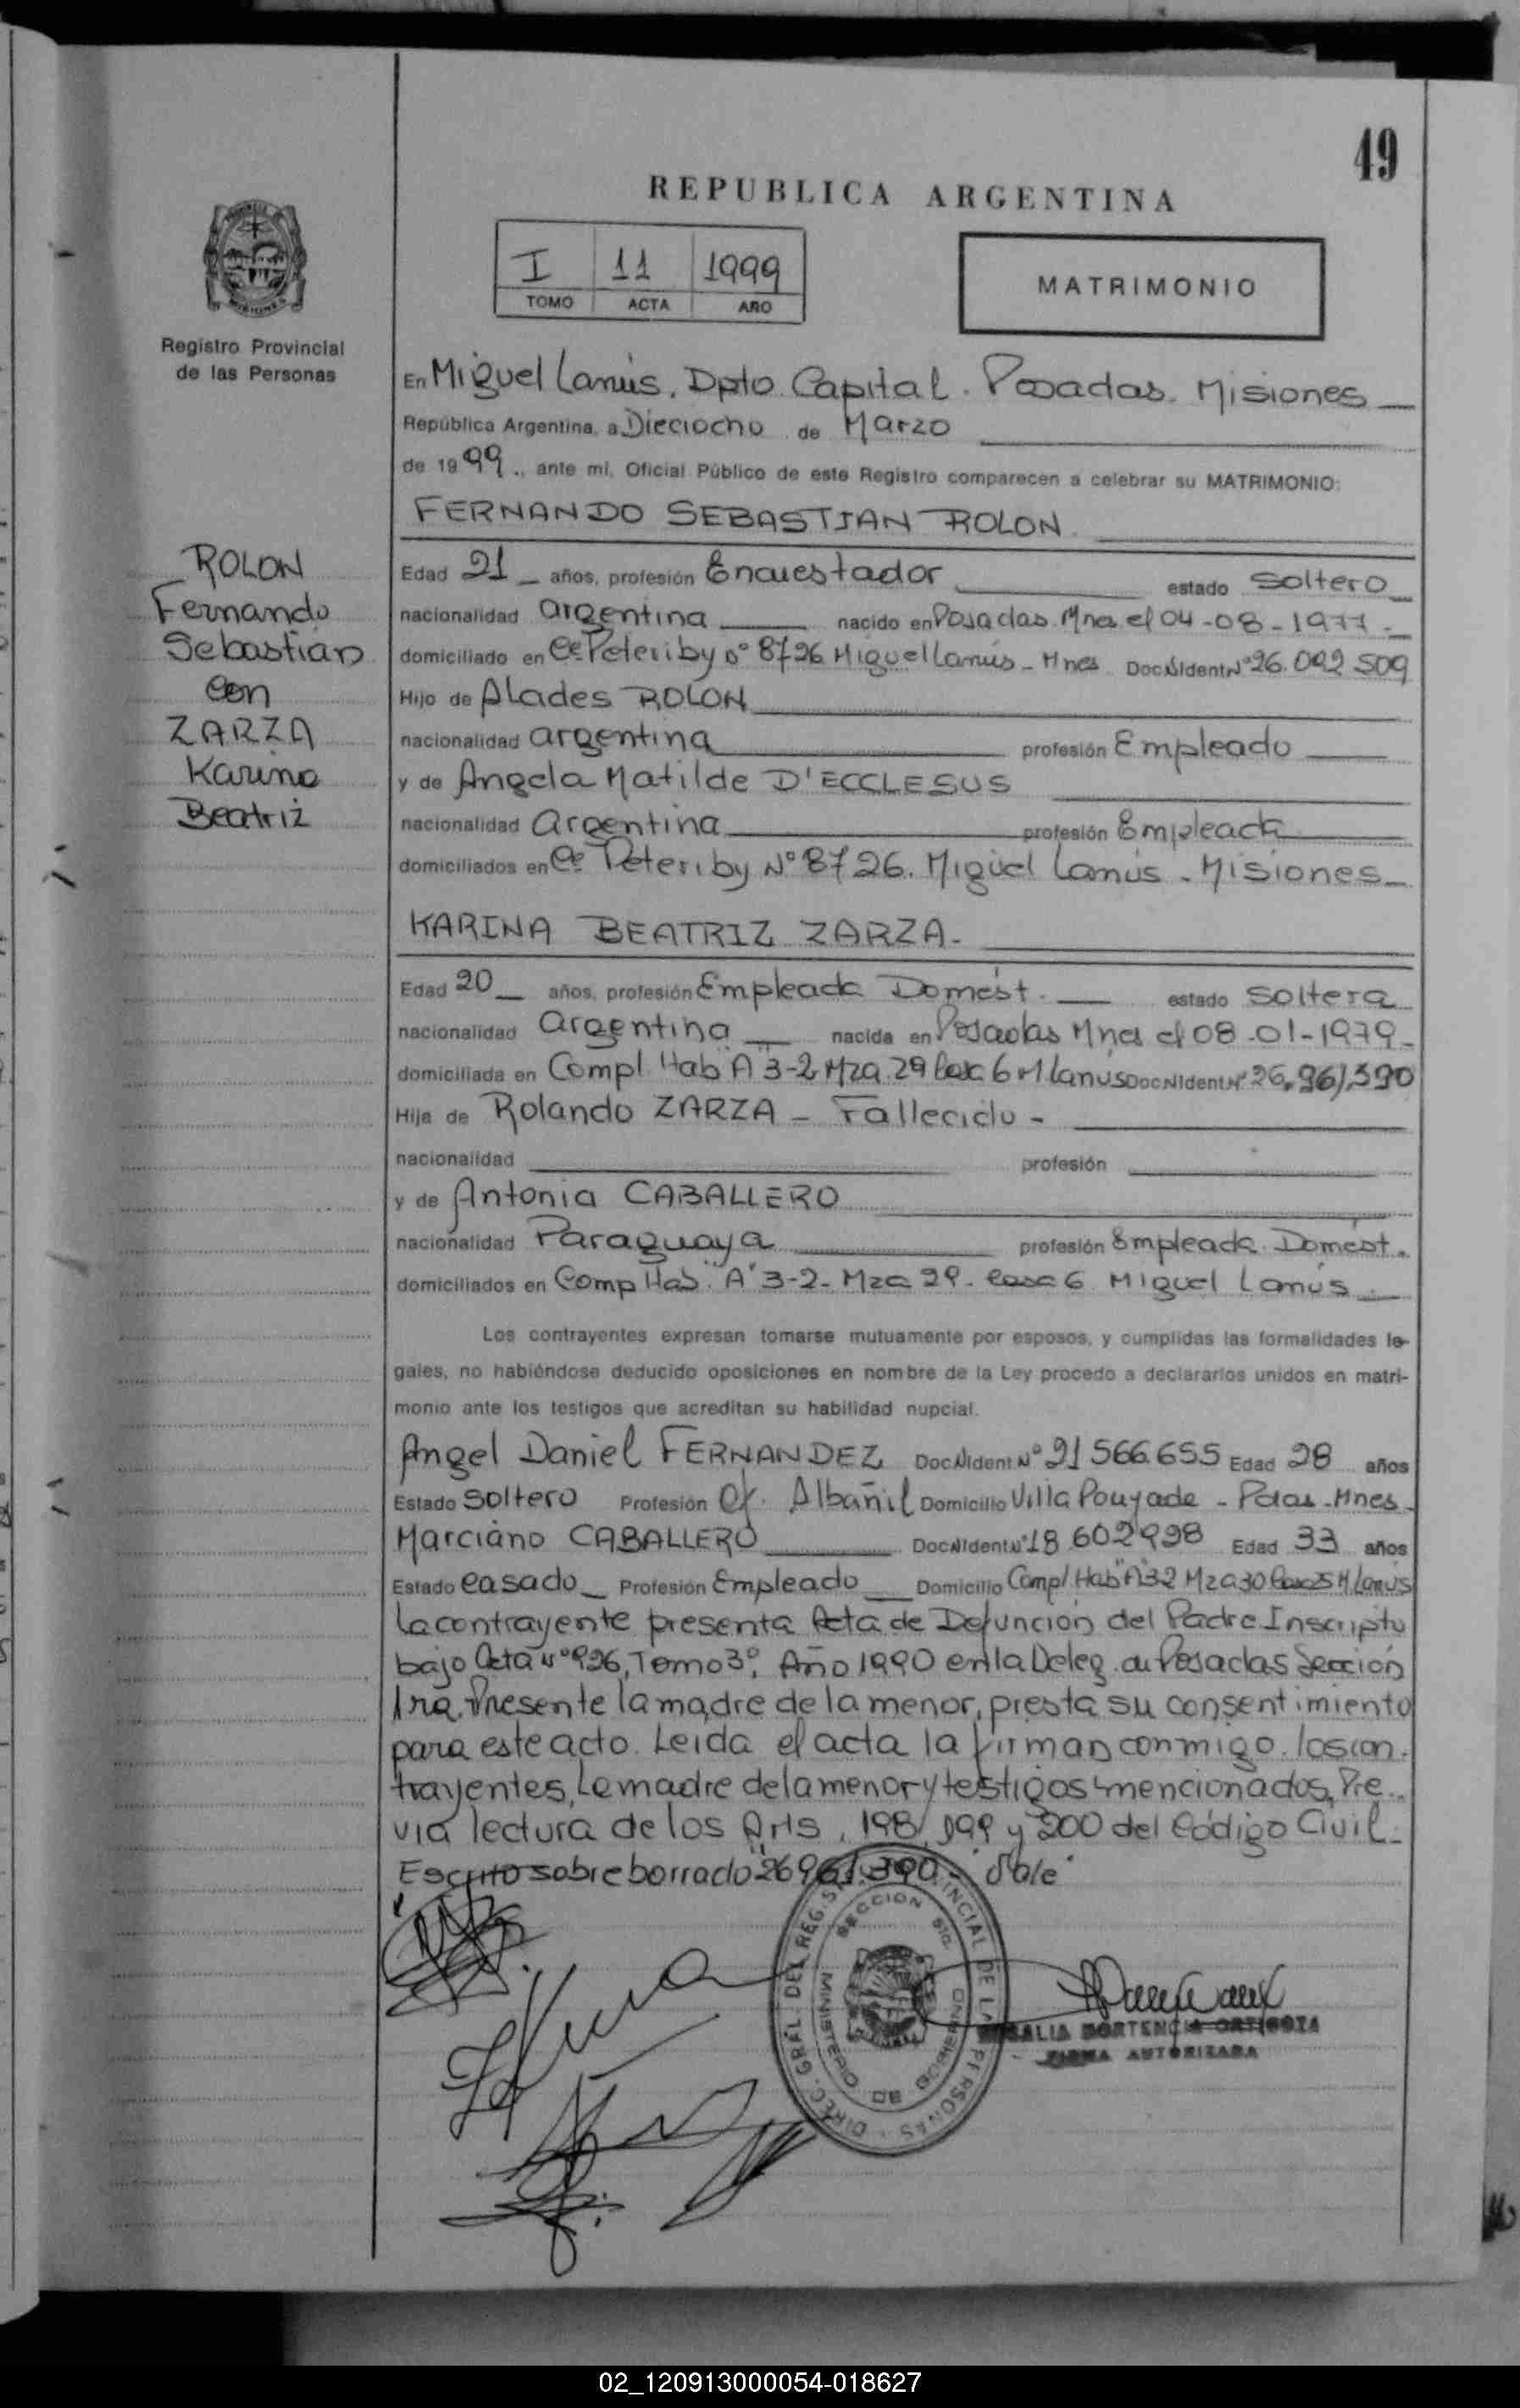 49
REPUBLICA ARGENTINA
I 11 1999
TOMO ACTA AÑO
MATRIMONIO
Registro Provincial
de las Personas
En Miguel Lanús. Dpto. Capital. Posadas. Misiones
República Argentina, a Dieciocho de Marzo
de 1999., ante mí, Oficial Público de este Registro comparecen a celebrar su MATRIMONIO:
FERNANDO SEBASTIAN ROLON
ROLON
Fernando
Sebastián
con
ZARZA
Karina
Beatriz
Edad 21 años, profesión Encuestador estado Soltero
nacionalidad argentina nacido en Posadas. Mnes el 04-08-1977.-
domiciliado en Ce Peteriby nº 8726 Miguel Lanús - Mnes DocNIdentNº 26.092 509
Hijo de Alades ROLON
nacionalidad argentina profesión Empleado
y de Angela Matilde D'ECCLESUS
nacionalidad Argentina profesión Empleada
domiciliados en Ce Peteriby Nº 8726. Miguel Lanús - Misiones
KARINA BEATRIZ ZARZA-
Edad 20 años, profesión Empleada Domést. estado Soltera
nacionalidad argentina nacida en Posadas Mnes el 08-01-1979-
domiciliada en Compl. Hab "A" 3-2 Mza. 29 Casa 6 M Lanús DocNIdentNº 26.961.390
Hija de Rolando ZARZA - Fallecido -
nacionalidad profesión
y de Antonia CABALLERO
nacionalidad Paraguaya profesión Empleada. Domést.
domiciliados en Comp Hab. "A" 3-2- Mza 29- Casa 6 Miguel Lanús
Los contrayentes expresan tomarse mutuamente por esposos, y cumplidas las formalidades le-
gales, no habiéndose deducido oposiciones en nombre de la Ley procedo a declararlos unidos en matri-
monio ante los testigos que acreditan su habilidad nupcial.
Angel Daniel FERNANDEZ DocNIdent Nº 21 566.655 Edad 28 años
Estado Soltero Profesión Of. Albañil Domicilio Villa Pouyade - Pdas - Mnes-
Marciano CABALLERO DocNIdentNº 18 602998 Edad 33 años
Estado Casado Profesión Empleado Domicilio Compl Hab "A" 32 Mza 30 Casa 25 M. Lanús
La contrayente presenta Acta de Defunción del Padre Inscripto
bajo Acta nº 926, Tomo 3º, Año 1990 en la Deleg. de Posadas Sección
1ra. Presente la madre de la menor, presta su consentimiento
para este acto. Leida el acta la firman conmigo. los con-
trayentes, la madre de la menor y testigos mencionados, Pre-
via lectura de los Arts, 198, 199 y 200 del Código Civil.-
Escrito sobre borrado "26961.390"- Vale
DIREC. GRAL. DEL REG. PROVINCIAL DE LAS PERSONAS
SECCION 5ta.
MINISTERIO DE GOBIERNO
ROSALIA HORTENCIA ORTIGOZA
FIRMA AUTORIZADA
02_120913000054-018627